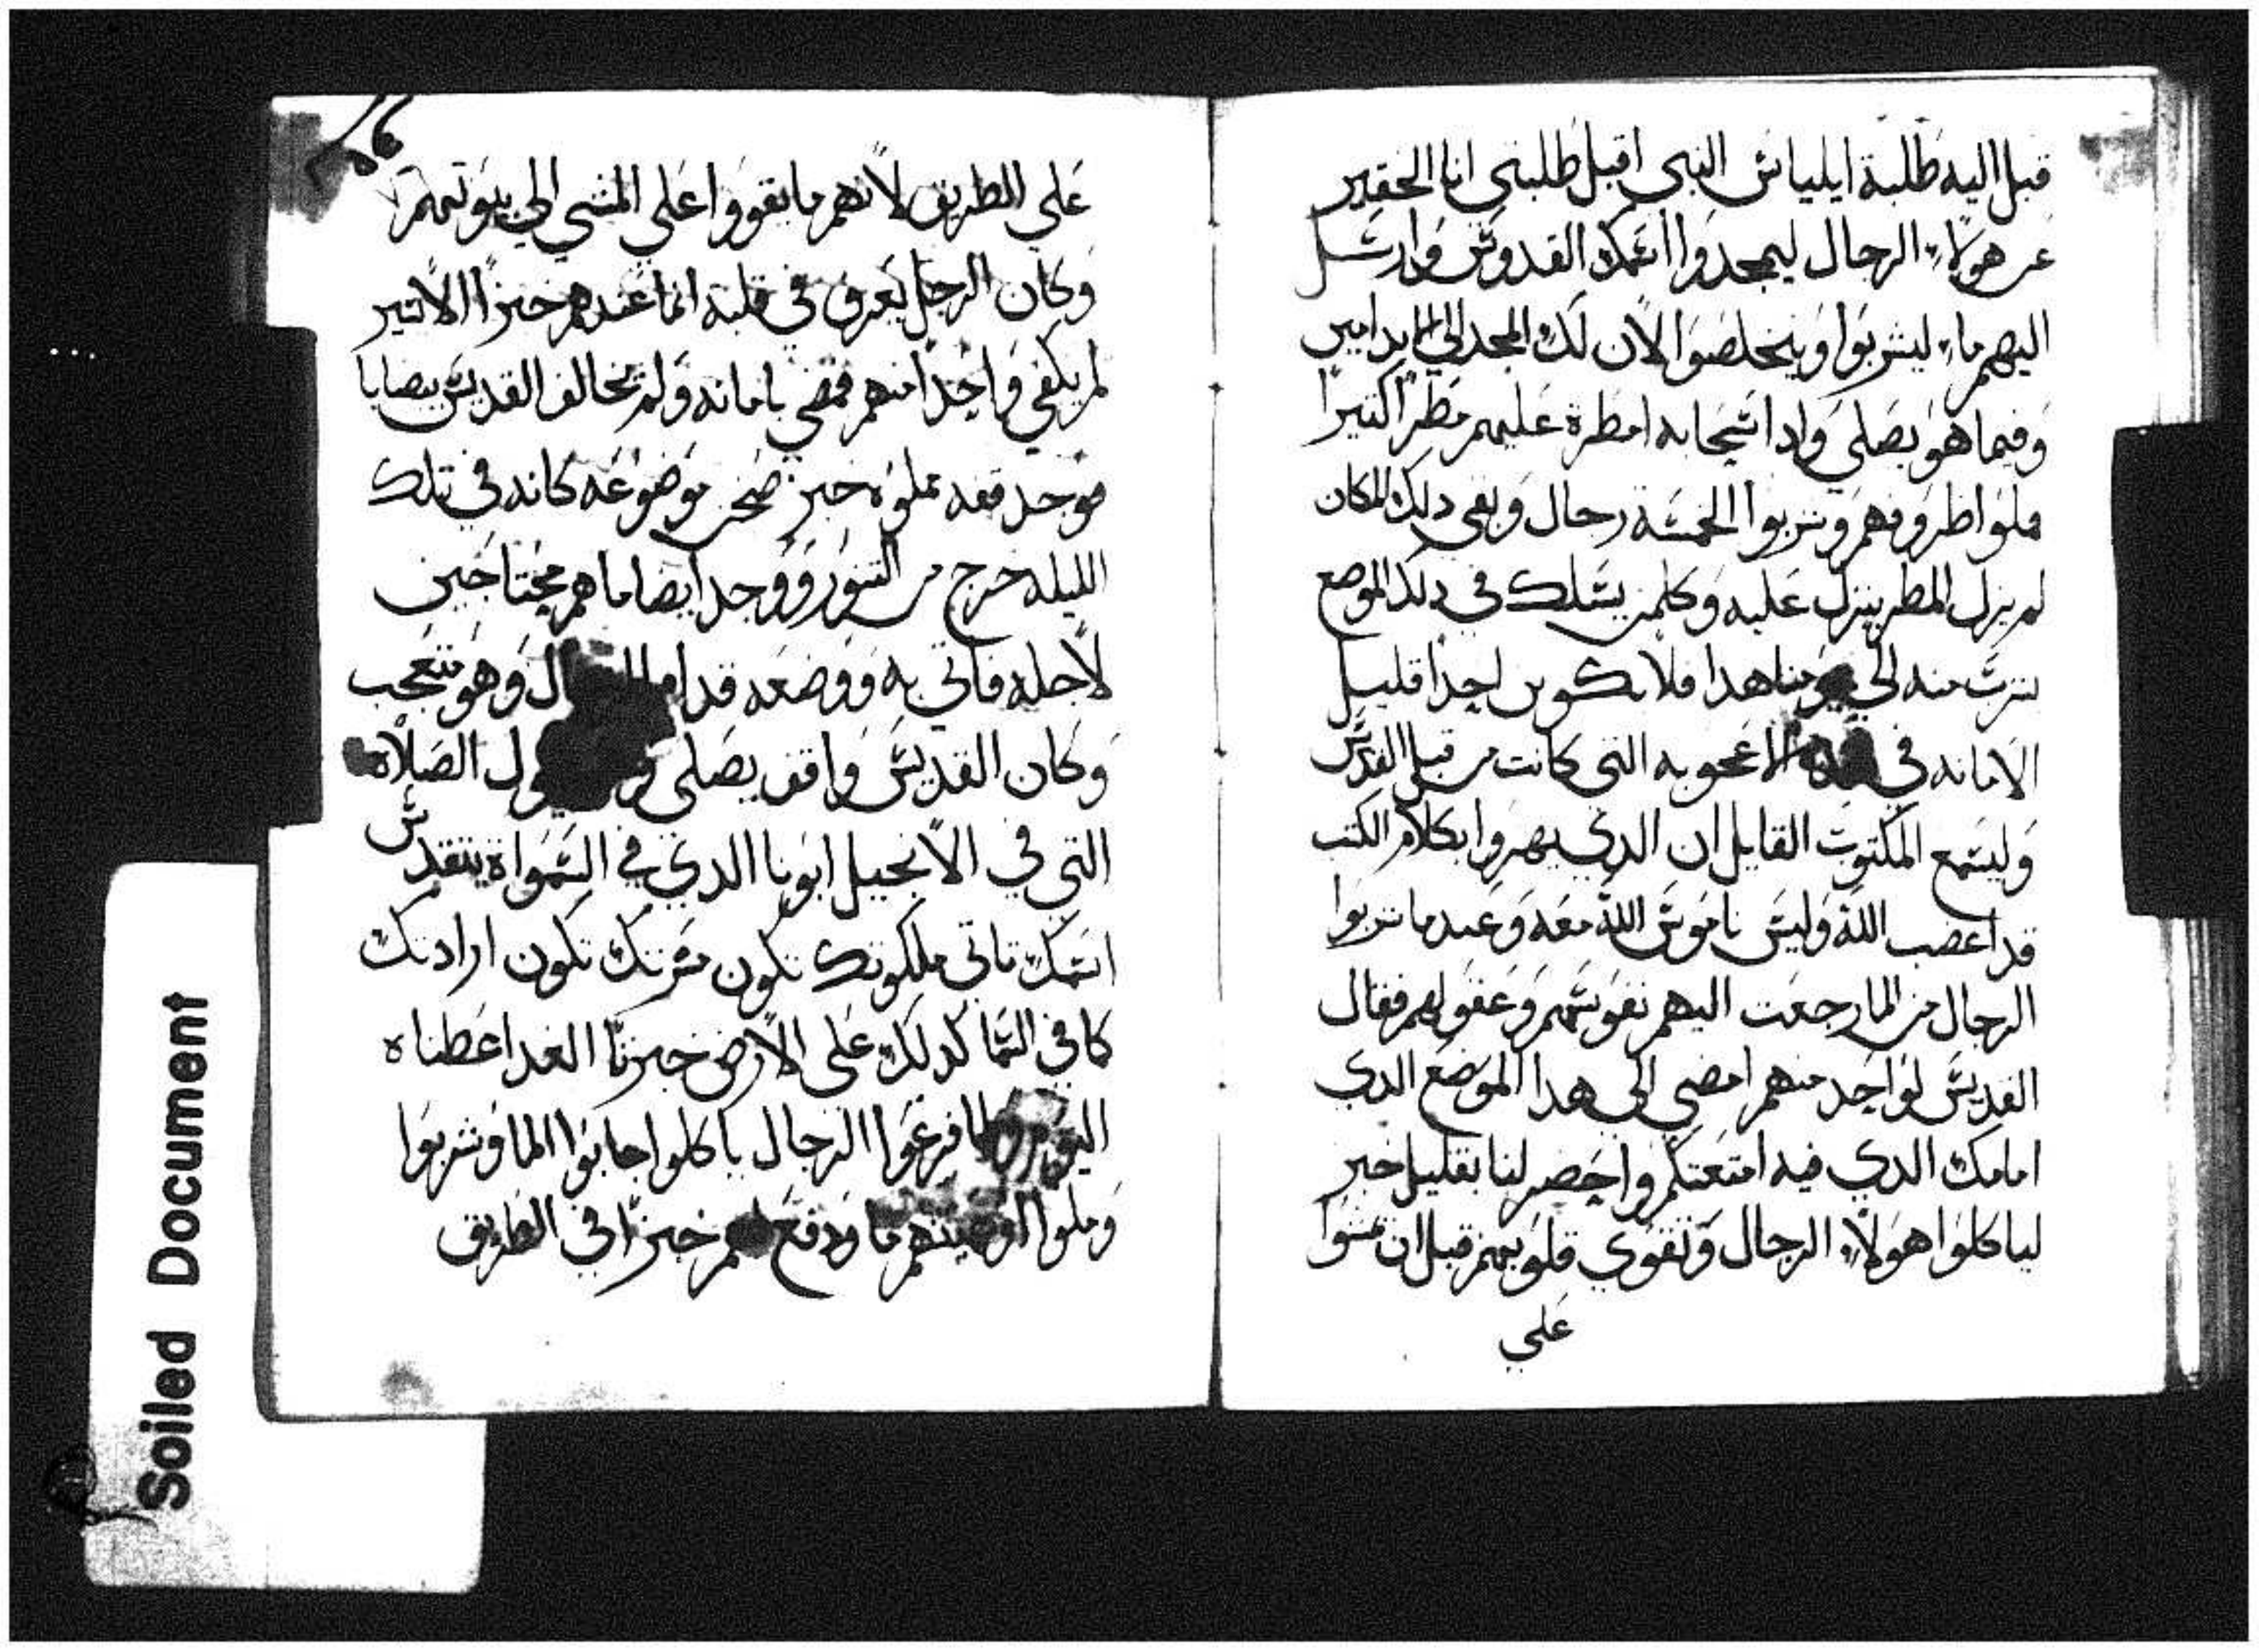 قبل اليه طلبة ايلياس النبي اقبل طلبتي انا الحقير
عن هولاء الرجال ليمجدوا اسمك القدوس وارسل
اليهم ماء ليشربوا ويتخلصوا الان لك المجد الي الابد امين
وفيما هو يصلي وادا سحابه امطرة عليهم مطرا كتيرا
فملوا ظروفهم وشربوا الخمسة رجال وبقي دلك المكان
لم يزل المطر ينزل عليه وكلمن يسلك في دلك الموضع
يشرب منه الي يومنا هدا فلا يكون احدا قليل
الامانه في هده الاعجوبه التي كانت من قبل القديس
وليسمع المكتوب القايل ان الدي يهزوا بكلام الكتب
قد اغضب الله وليس ناموس الله معه وعندما شربوا
الرجال من الما رجعت اليهم نفوسهم وعقولهم فقال
القديس لواحد منهم امضي الي هدا الموضع الدي
امامك الدي فيه امتعتكم واحضر لنا بقليل خبز
لياكلوا هولاء الرجال وتقوي قلوبهم قبل ان يمشوا
علي
علي الطريق لانهم ما يقووا علي المشي الي بيوتهم
وكان الرجل يعرف في قلبه انما عندهم خبزا الا يسير
لم يكفي واحدا منهم فمضي بامانه ولم يخالف القديس بيصايا
فوجد قفه مملوه خبز سخن موضوعه كانه في تلك
الليله خرج من التنور ووجد ايضا ما هم محتاجين
لاجله فاتي به ووضعه قدام ال وهو متعجب
وكان القديس واقف يصلي الصلاه
التي في الانجيل ابونا الدي في السموات يتقدس
اسمك تاتي ملكوتك تكون مسرتك تكون ارادتك
كما في السما كدلك علي الارض خبزنا الغد اعطناه
اليوم ولما فرغوا الرجال ياكلوا جابوا الما وشربوا
وملوا اوعيتهم ما ودفع لهم خبزا في الطريق
Soiled Document